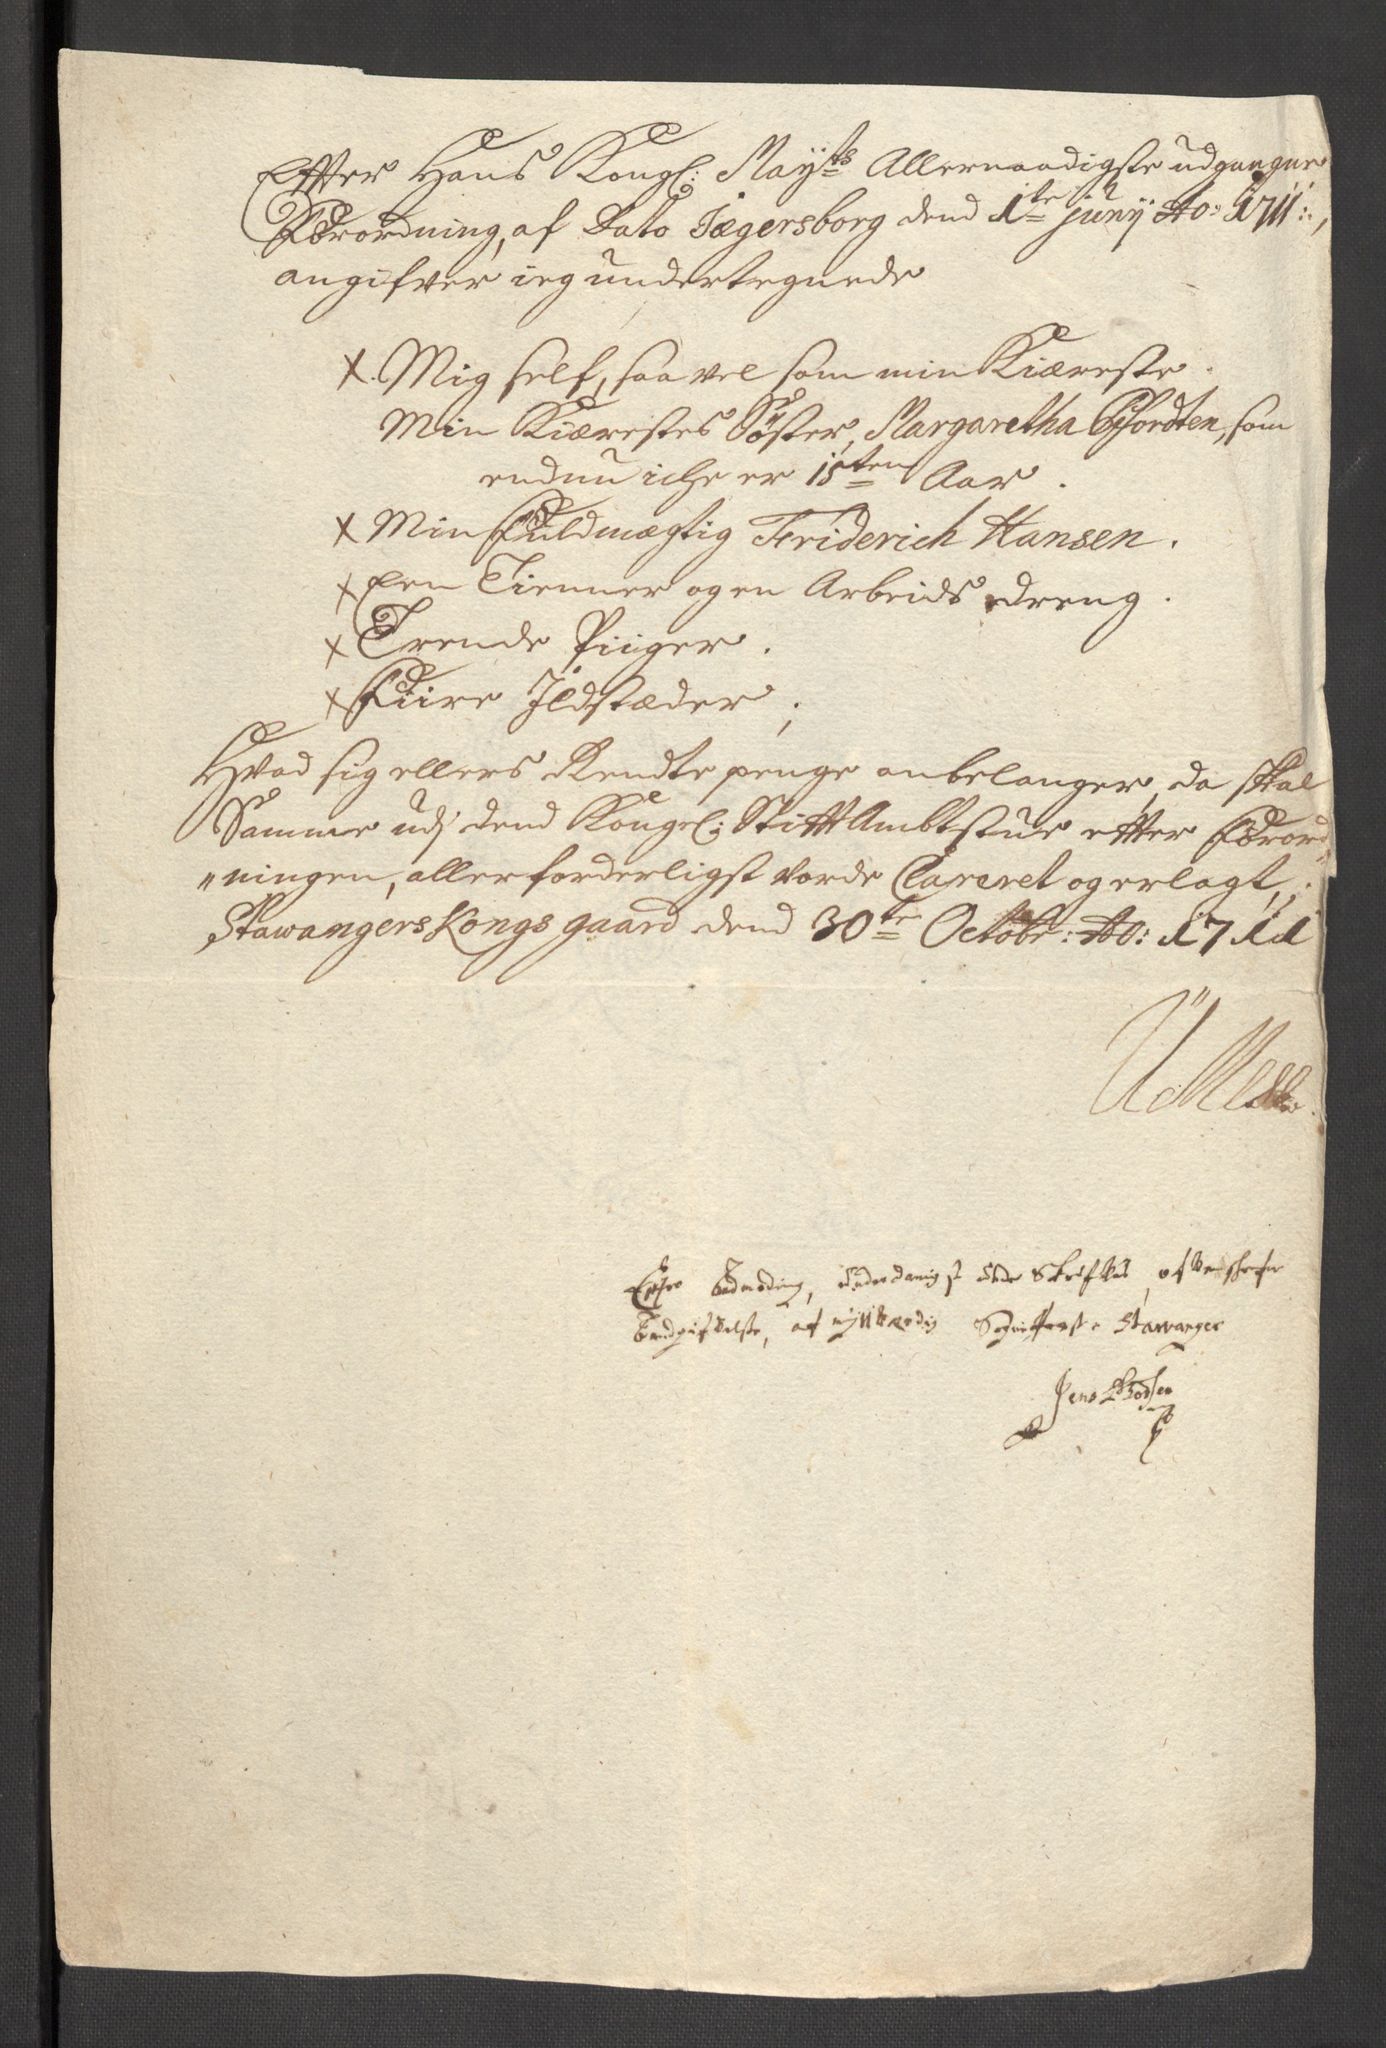 Effter Hans Kongl: Maÿts Allernaadigste udgangne
Forordning, af Dato Jægersborg dend 1te junÿ Ao: 1711:,
angifver ieg undertegnede
X. Mig self, saa vel som min Kiæreste.
Min Kiærestes Söster, Margaretha Pfordten, som
endnu iche er 15ten Aar.
X Min Fuldmægtig Friderich Hansen.
X Een Tienner og en Arbeids dreng.
X Trende Piiger.
X Fiire Ildstæder,
Hvad sig ellers Rendte penge anbelanger, da skal
Samme udj dend Kongel: Stifft Ambtstue effter Forord
"ningen, allerforderligst vorde Clareret og erlagt,
Stawangers Kongs gaard dend 30te Octobr: Ao: 1711
Effter, underdanigst
af Stawanger
Jens